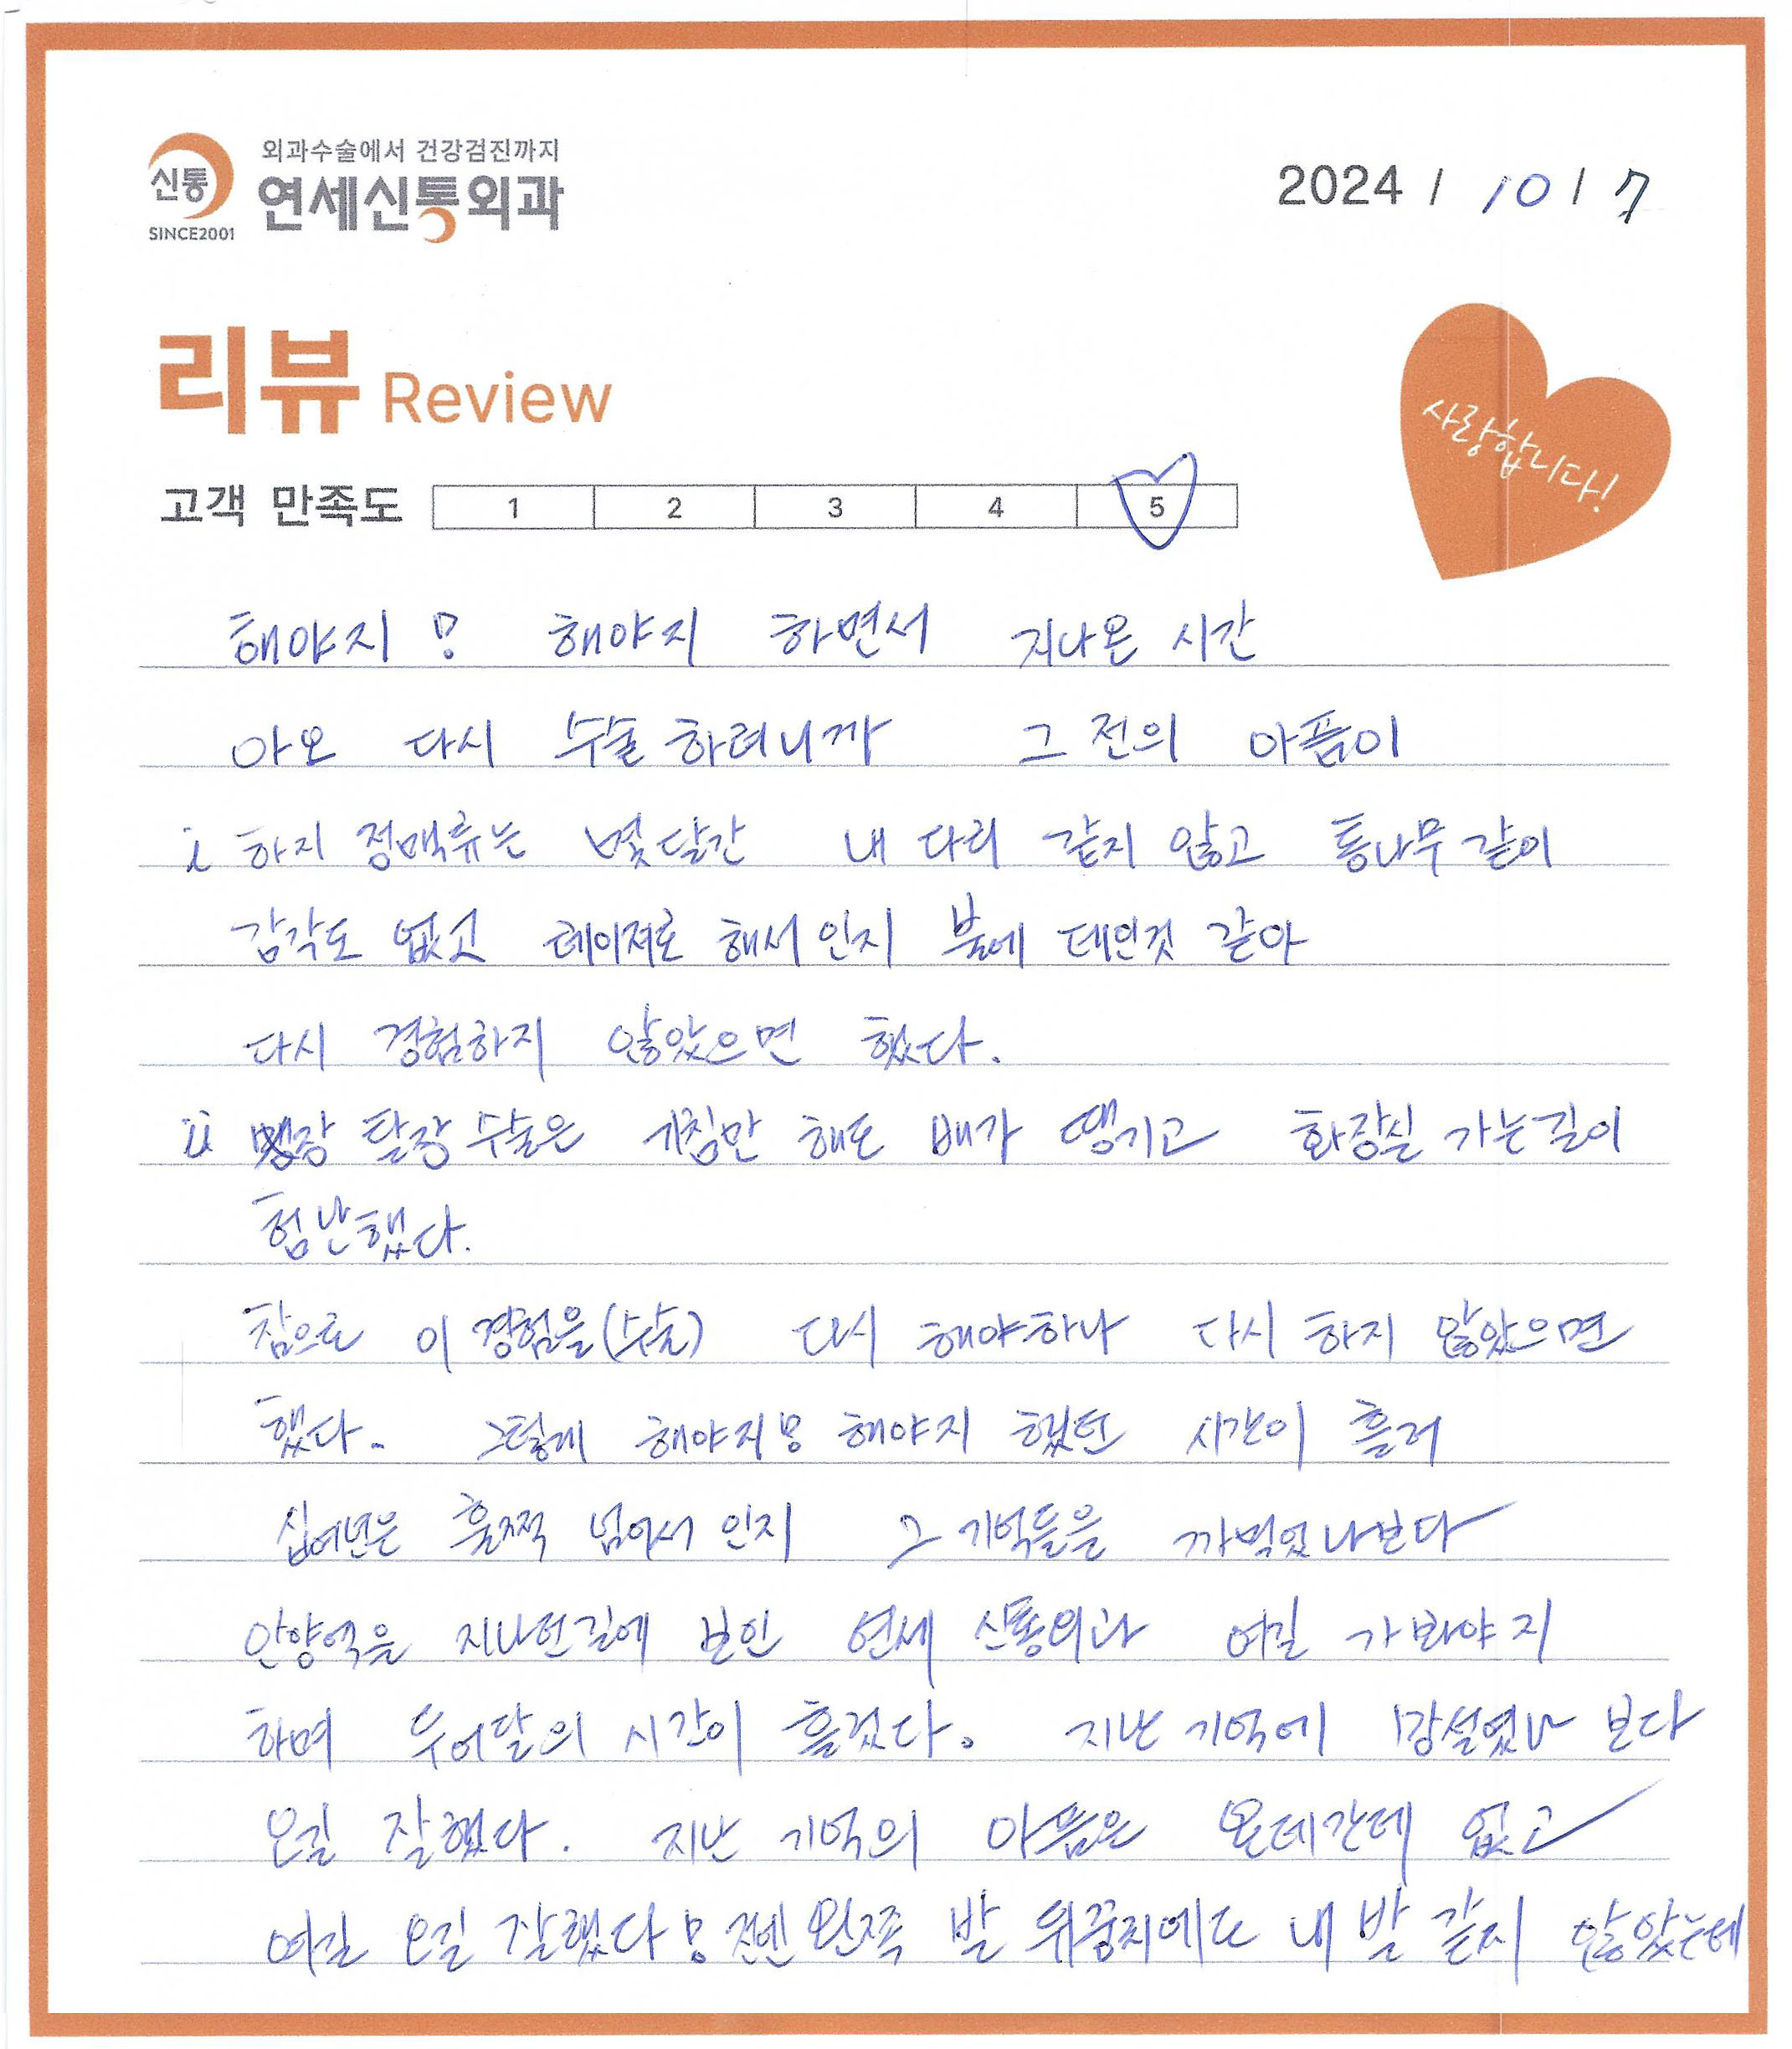 외과수술에서 건강검진까지
신통 연세신통외과
SINCE2001
2024 / 10 / 7
리뷰 Review
사랑합니다!
고객 만족도 1 2 3 4 5
해야지! 해야지 하면서 지나온 시간
아오 다시 수술 하려니까 그 전의 아픔이
i 하지 정맥류는 몇달간 내 다리 같지 않고 통나무 같이
감각도 없고 레이져로 해서 인지 불에 데인것 같아
다시 경험하지 않았으면 했다.
ii 탈장 수술은 기침만 해도 배가 땡기고 화장실 가는길이
험난했다.
참으로 이 경험을(수술) 다시 해야하나 다시 하지 않았으면
했다. 그렇게 해야지! 해야지 했던 시간이 흘러
십여년은 훌쩍 넘어서 인지 그 기억들을 까먹었나보다
안양역을 지나던길에 보인 연세 신통외과 여길 가봐야지
하며 두어달의 시간이 흘렀다. 지난 기억에 망설였나 보다
오길 잘했다. 지난 기억의 아픔은 온데간데 없고
여길 오길 잘했다! 전엔 왼쪽 발 뒤꿈치에도 내 발 같지 않았는데